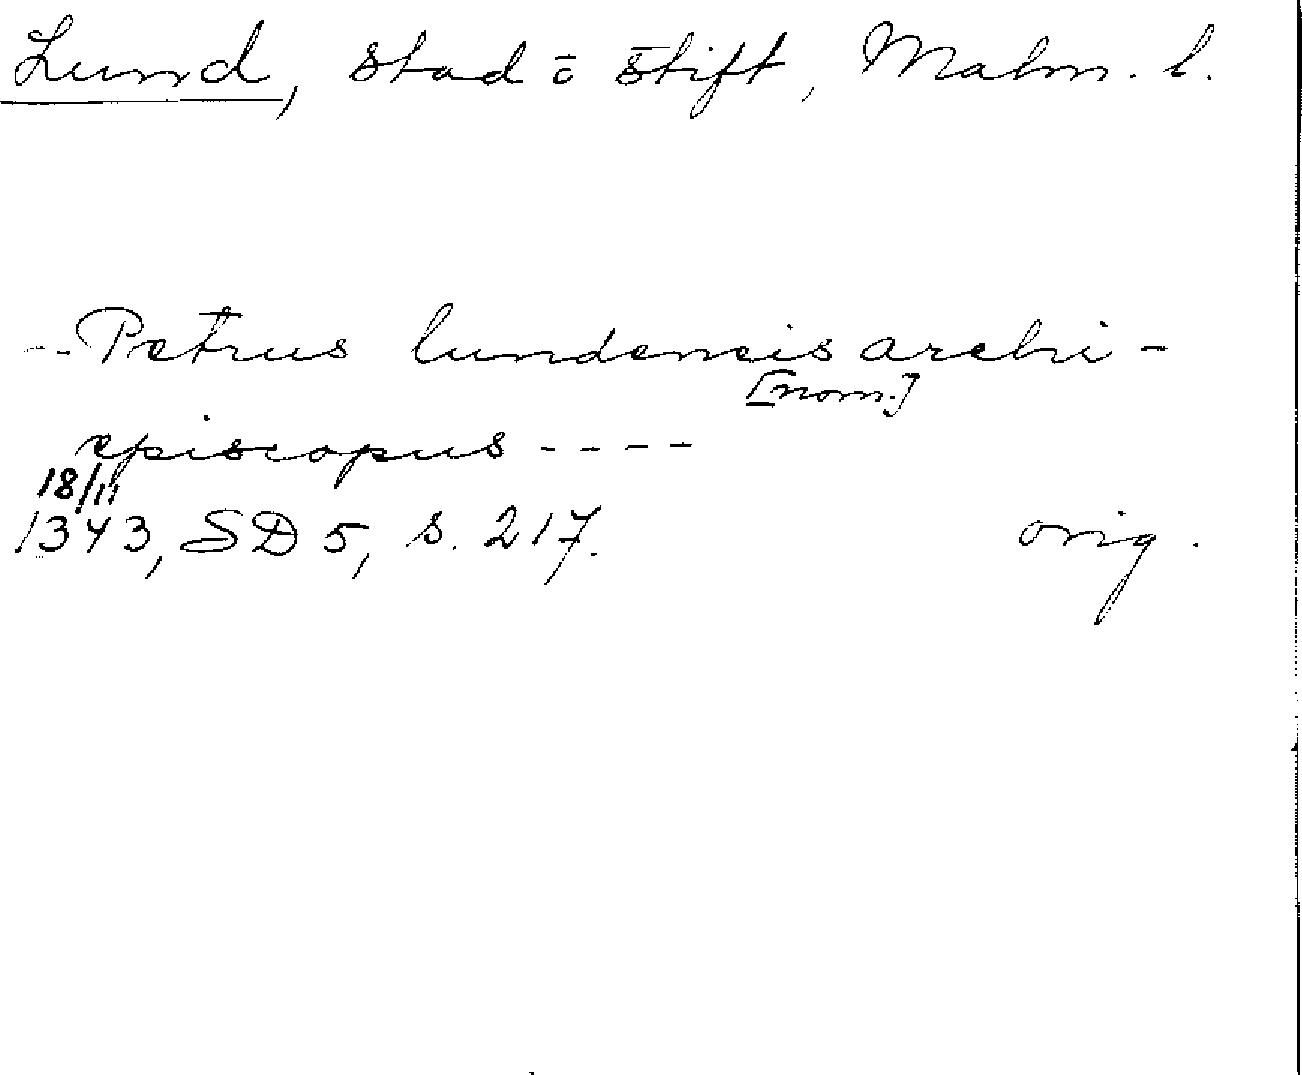 Lund, stad ō stift, Malm. l.
-- Petrus lundensis archi-
[nom.]
episcopus ----
18/11
1343, SD 5, s. 217.
orig.